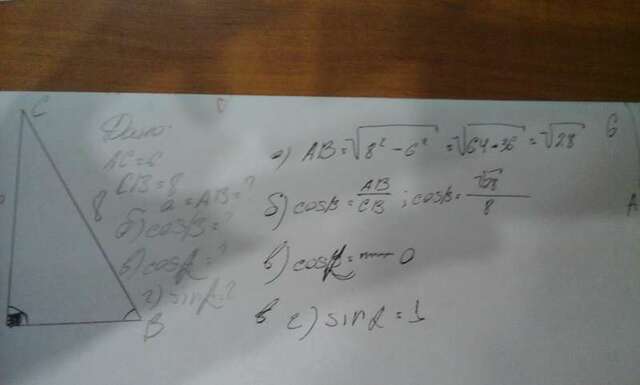 C
Дано:
AC=6
CB=8
а=AB=?
б) cosB=?
в) cosα=?
г) sinα=?
8
B
а) AB=√8²-6² = √64-36 = √28
б) cosB = AB/CB ; cosB = √28/8
в) cosα = 0
в г) sinα = 1
6
A